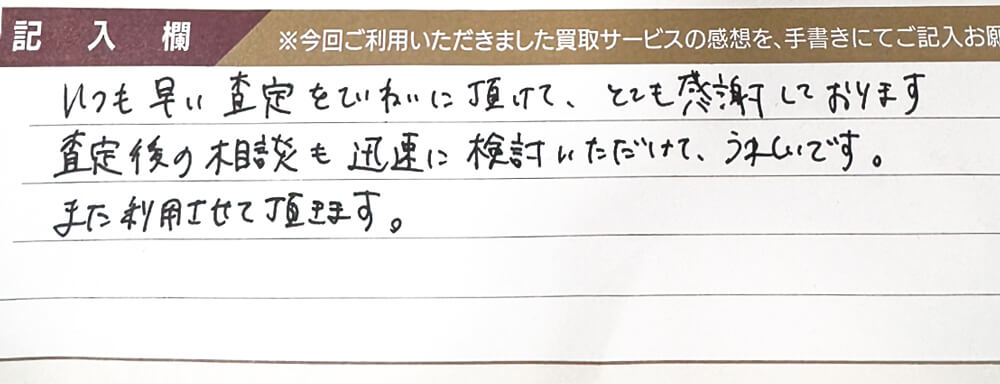 記入欄
※今回ご利用いただきました買取サービスの感想を、手書きにてご記入お願
いつも早い査定をていねいに頂けて、とても感謝しております
査定後の相談も迅速に検討いただけて、うれしいです。
また利用させて頂きます。